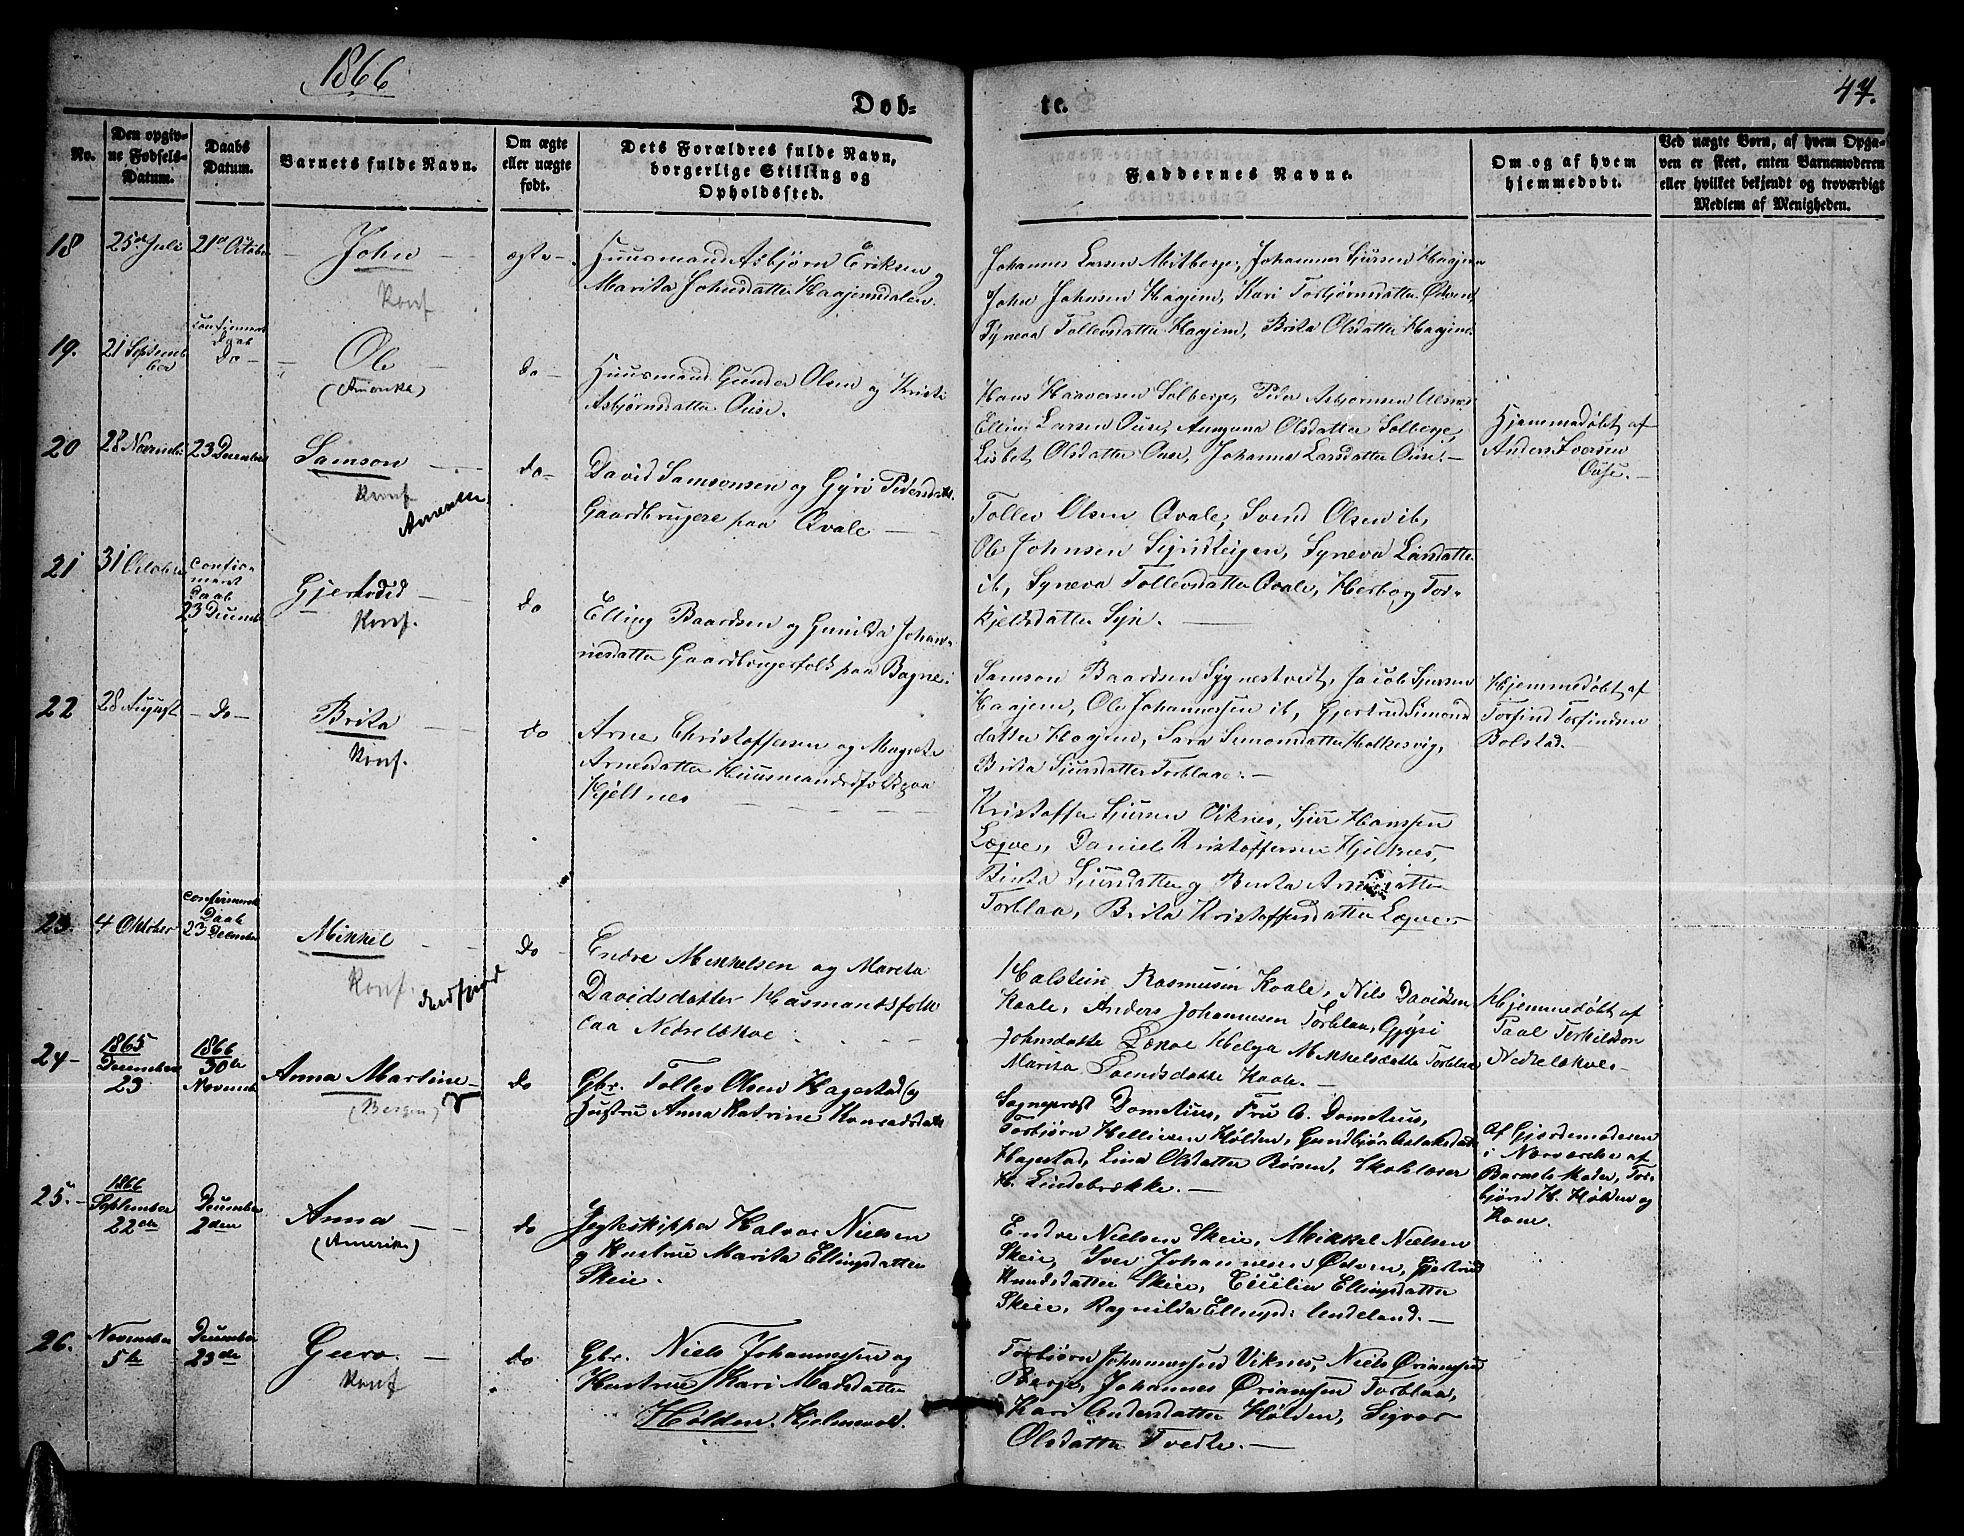 1866
Døb-
te.
47.
No.
Den opgiv-
ne Fødsels-
Datum.
Daabs
Datum.
Barnets fulde Navn.
Om ægte
eller uægte
født.
Dets Forældres fulde Navn,
borgerlige Stilling og
Opholdssted.
Faddernes Navne.
Om og af hvem
hjemmedøbt.
Ved uægte Børn, af hvem Opga-
ven er skeet, enten Barnemoderen
eller hvilket bekjendt og troværdigt
Medlem af Menigheden.
18
25de Juli
21de October
John
Konf
ægte
Huusmand Asbjørn Eriksen og
Marita Johnsdatter Haajemsdalen.
Johannes Larsen Mitberge, Johannes Sjursen Haajem
John Johnsen Haajem, Kari Torbjørnsdatter Østven,
Syneva Tollevsdatter Haajem, Brita Olsdatter Haajem.
19.
21 Septem-
ber
confirmert
Daab
Do
Ole
(Amerika)
do
Huusmand Gunder Olsen og Kristi
Asbjørnsdatter Ouse.
Hans Haaversen Solberge, Peder Asbjørnsen
Elling Larsen Ouse, Olsdatter Solberge,
Lisbet Olsdatter Ouse, Johanna Larsdatter Ouse.
Hjemmedøbt af
Anders Iversen
Ouse.
20
28 November
23 December
Samson
Konf
Amerika
do
David Samsonsen og Gyri Pedersdatter
Gaardbrugere paa Qvale
Tollev Olsen Qvale, Svend Olsen ib,
Ole Johnsen Sysedteigen, Syneva Larsdatter
ib, Syneva Tollevsdatter Qvale, Herborg Tor-
kjelsdatter Syse.
21
31 October
confir-
meret
Daab
23 December
Gjertrud
Konf.
do
Elling Baardsen og Gunilda Johan-
nesdatter Gaardbrugerfolk paa Bagne.
Samson Baardsen Syg nestvedt, Jacob Sjursen
Haajem, Ole Johannessen ib, Gjertrud Simons
datter Haajem, Sara Simonsdatter Holkesvig,
Brita Sjursdatter Torblaae.
Hjemmedøbt af
Torfind Torfindsen
Bolstad.
22
28 August
do
Brita
Konf.
do
Arne Christoffersen og Magrete
Arnesdatter Huusmandsfolk paa
Kjeltnes
Kristoffer Sjursen Viknes, Sjur Hansen
Legve, Daniel Kristoffersen Hjeltnes,
Brita Sjursdatter og Brita Arnesdatter
Torblaa, Brita Kristoffersdatter Legve
23.
4 Oktober
confirmeret
Daab
23 December
Mikkel
Konf.
do
Endre Mikkelsen og Marita
Davidsdatter Husmandsfolk
paa Nedrelekve
Halstein Rasmusen Kvale, Nils Davidsen
Kvale, Anders Johannesen Torblaa, Gyøri
Johnsdatter Lekve Helga Mikkelsdatter Torblaa
Marita Svendsdatter Kvale.
Hjemmedøbt af
Paal Torkildsen
Nedrelekve
24
1865
December
23
1866
30te
November
Anna Martine
(Bergen)
do
Gbr. Tollev Olsen Hagestad og
Hustru Anna Katrine Konradsdatter
Sogneprest Dometius, Fru A. Dometius,
Torbjørn Helliesen Hølden, Gundbjør Aslaksdatter
Hagestad, Lina Olsdatter Børsen, Skolelærer
H. Lindebrække.
Af Gjordemoderen
i Nærværelse af
Barnets Moder, Tor-
bjørn H. Hølden og
Kone.
25.
1866
September
22de
December
2den
Anna
(Amerika)
do
Jægteskipper Halvor Nielsen
og Hustrue Marita Ellingsdatter
Skeie.
Endre Nielsen Skeie, Mikkel Nielsen
Skeie, Iver Johannesen Østven, Gjertrud
Knudsdatter Skeie, Cecilia Ellingsdatter
Skeie, Ragnilda Ellingsd: Lindeland.
26.
November
5te
December
23de
Guro.
Konf
do
Gbr. Niels Johannessen og
Hustrue Kari Madsdatter
Hølden. Hjelmevold.
Torbjørn Johannessen Viknes, Niels Ørjansen
Berge, Johannes Ørjansen Torblaa,
Kari Andersdatter Hølden, Sigvor
Olsdatter Tvedte.